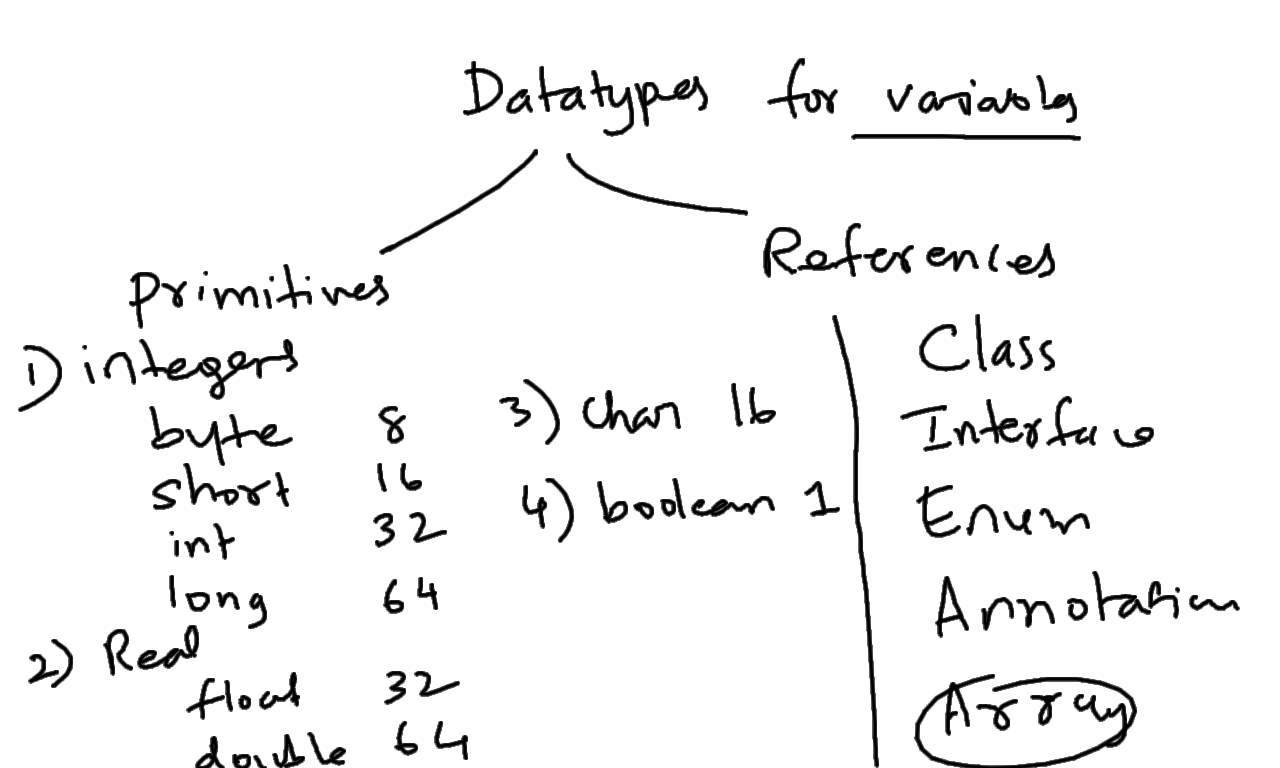 Datatypes for variables
Primitives
1) integers
byte 8
short 16
int 32
long 64
2) Real
float 32
double 64
3) char 16
4) boolean 1
References
Class
Interface
Enum
Annotation
Array